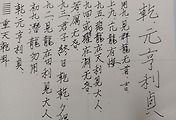 乾元亨利貞
重天乾卦
乾元亨利貞
初九潛龍勿用
九二見龍在田利見大人
九三君子終日乾乾夕惕
若厲无咎
九四或躍在淵无咎
九五飛龍在天利見大人
上九亢龍有悔
用九見群龍无首吉